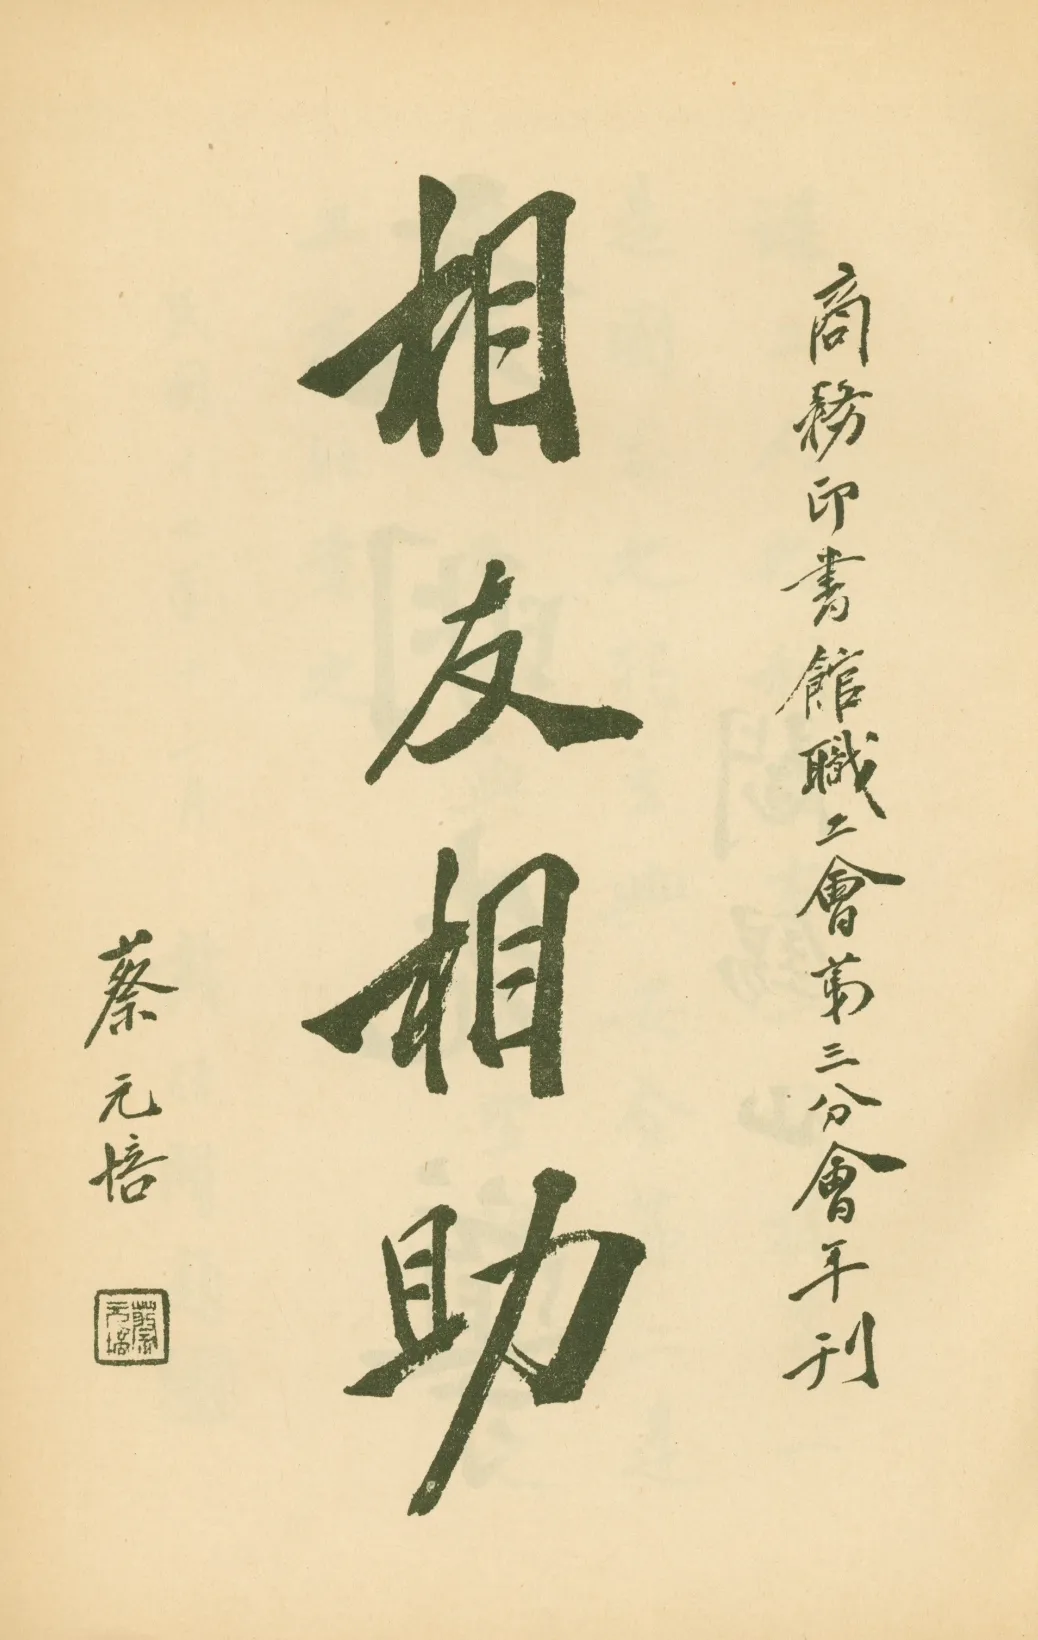 商務印書館職工會第三分會年刊
相友相助
蔡元培
蔡元培